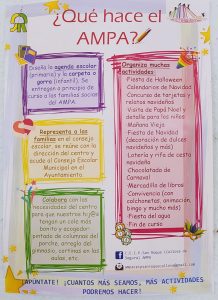 ¿Qué hace el
AMPA?
Diseña la agenda escolar
(primaria) y la carpeta o
gorra (infantil). Se
entregan a principio de
curso a las familias socias
del AMPA.
Representa a las
familias en el consejo
escolar, se reúne con la
dirección del centro y
acude al Consejo Escolar
Municipal en el
Ayuntamiento
Colabora con las
necesidades del centro
para que nuestros hij@s
tengan un cole más
bonito y acogedor:
pintado de columnas del
porche, arreglo del
gimnasio, cortinas en las
aulas, etc.
Organiza muchas
actividades:
- Fiesta de Halloween
- Calendarios de Navidad
- Concurso de tarjetas y
relatos navideños
- Visita de Papá Noel y
detalle para los niños
- Mañana Vieja
- Fiesta de Navidad
(decoración de dulces
navideños y más)
- Lotería y rifa de cesta
navideña
- Chocolatada de
Carnaval
- Mercadillo de libros
- Convivencia (con
colchonetas, animación,
bingo y mucho más)
- Fiesta del agua
- Fin de curso
C.E.I.P. San Roque
¡APÚNTATE! ¡CUANTOS MÁS SEAMOS, MÁS ACTIVIDADES
PODREMOS HACER!